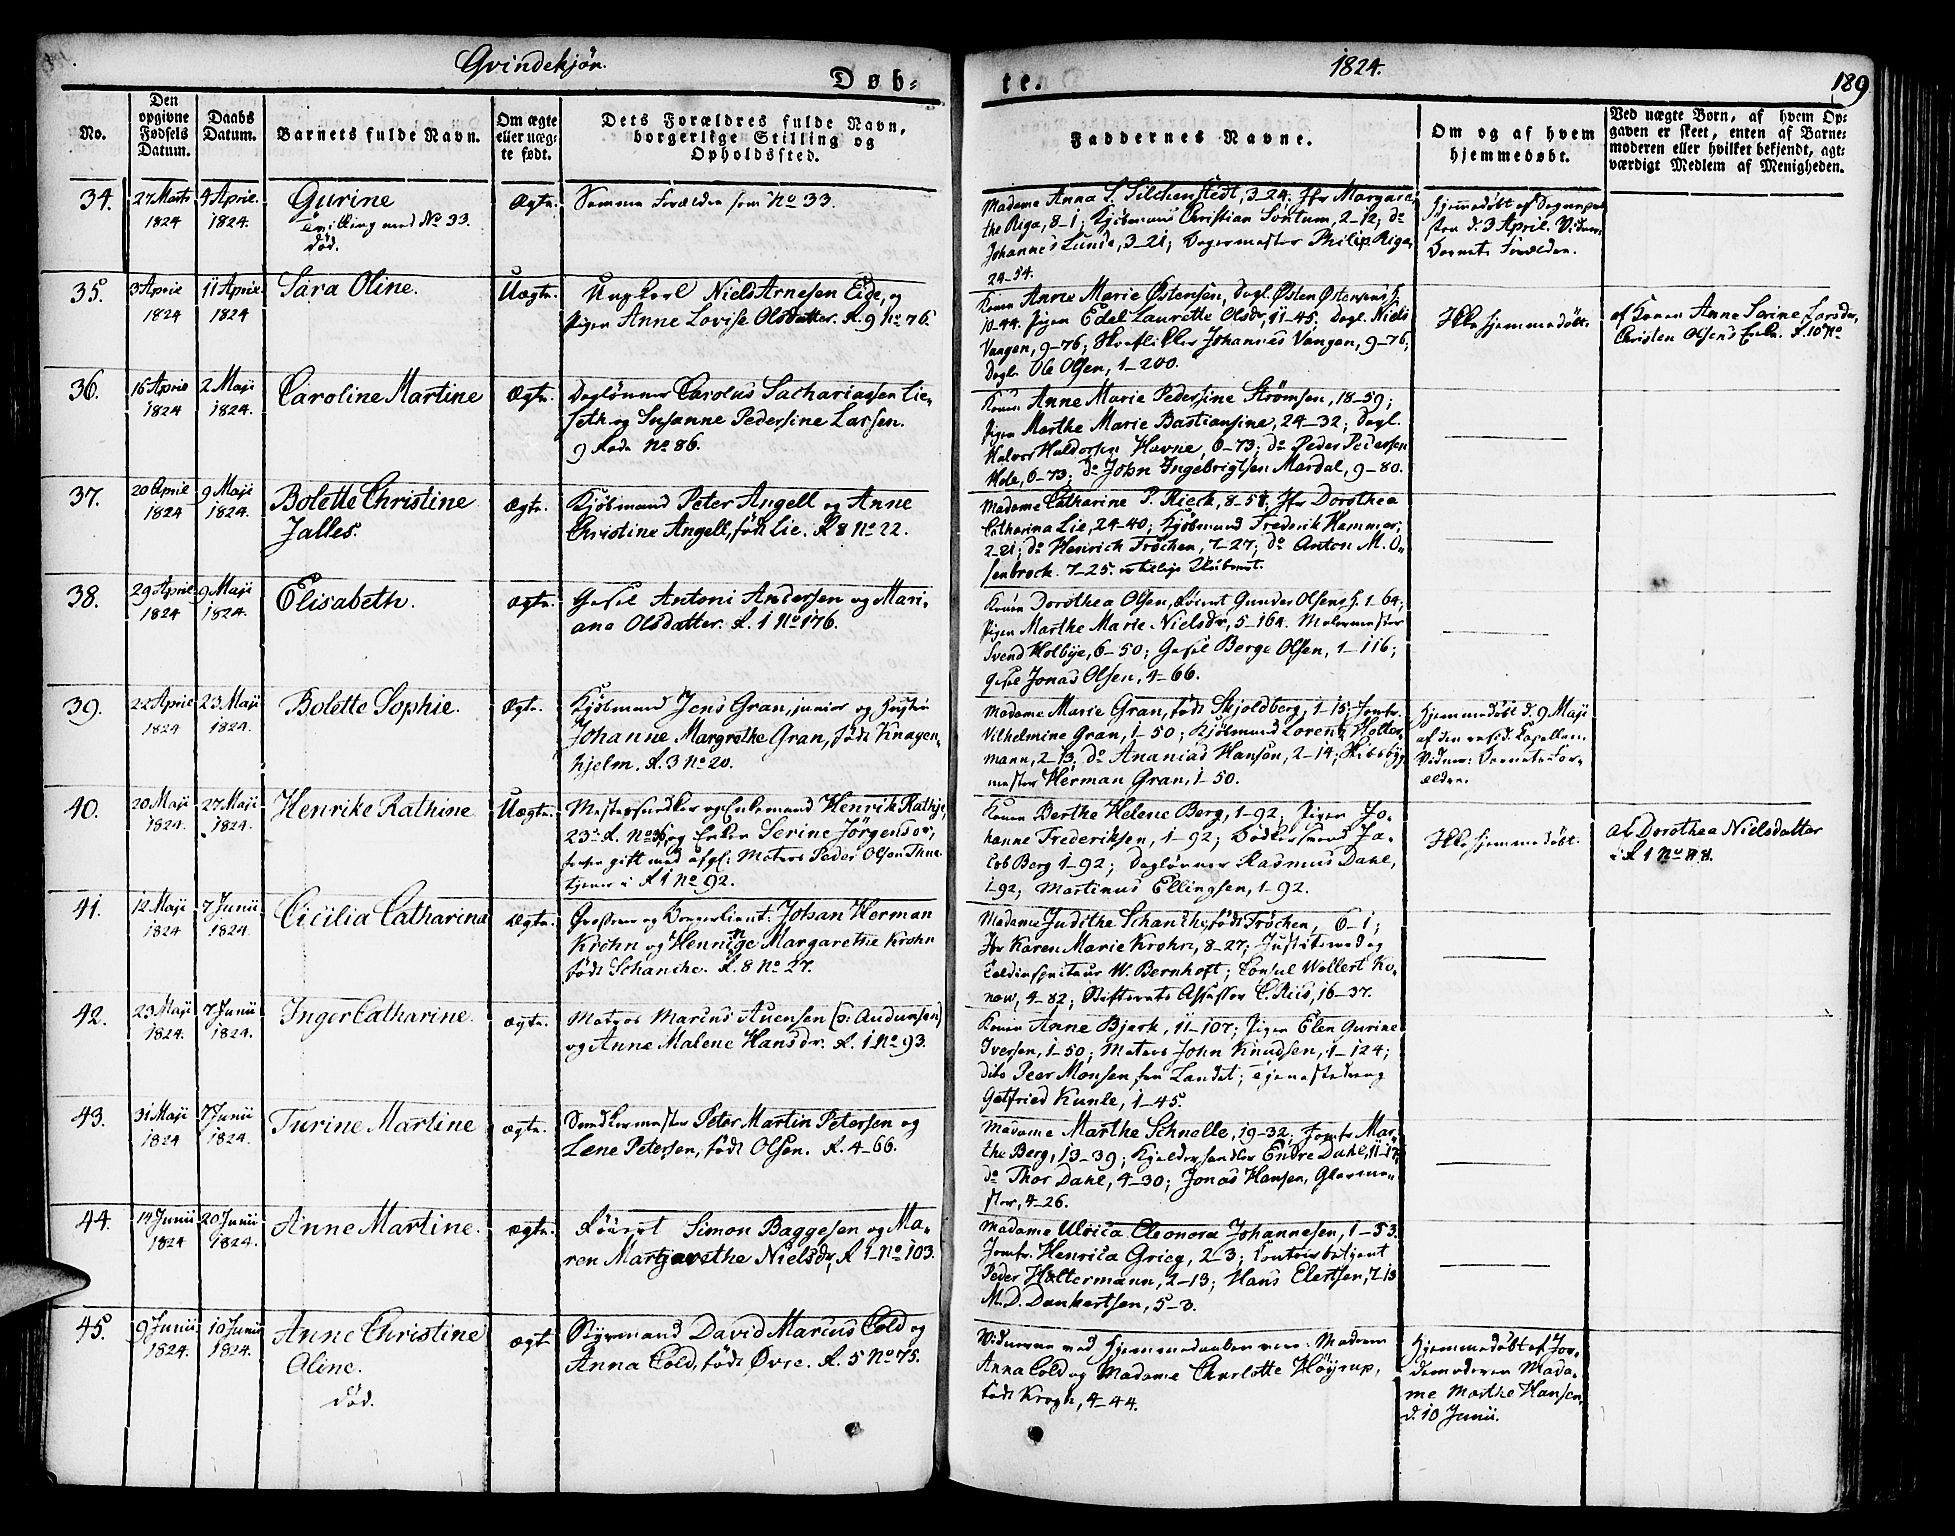 Qvindekjön.
Døb-
te.
1824.
189
No.
Den opgivne Fødsels Datum.
Daabs Datum.
Barnets fulde Navn.
Om ægte eller uæg-te født.
Dets Forældres fulde Navn, borgerlige Stilling og Opholdssted.
Faddernes Navne.
Om og af hvem hjemmedøbt.
Ved uægte Børn, af hvem Op-gaven er skeet, enten af Barne-moderen eller hvilket bekjendt, agt-værdigt Medlem af Menigheden.
34.
27 Marts 1824
4 April. 1824.
Gurine
Tvilling med No 33.
död.
Ægte.
Samme Forældre som No 33.
Madame Anna S. Silchenstedt, 3-24. Jfr Margare-
the Riga, 8-1; Kjöbmand Christian Sontum, 2-12; do
Johannes Lunde, 3-21; Bagermester Philip Riga,
24-54.
Hjemmedöbt af Sognepræ-
sten d. 3 April. Vidner:
Barnets Forældre.
35.
3 April 1824
11 April. 1824
Sara Oline.
Uægte.
Ungkarl Niels Arnesen Eide, og
Pigen Anne Lovise Olsdatter. R. 9 No 76.
Konen Anne Marie Østensen, Dagl. Østen Østensens H.
10-44. Pigen Edel Laurette Olsdr, 11-45; Dagl. Niels
Vangen, 9-76; Skoflikker Johannes Vangen, 9-76;
Dagl. Ole Olsen, 1-200.
Ikke hjemmedöbt.
af Konen Anne Serine Larsdr,
Christen Olsens Enke. R. 10 No
36.
16 April 1824
2 Maji 1824.
Caroline Martine
Ægte.
Daglönner Carolus Sachariassen Lie-
seth og Susanne Pedersine Larsen.
9 Rode No 86.
Konen Anne Marie Pedersine Strömsen, 18-59;
Pigen Marthe Marie Bastiansine, 24-32; Dagl.
Halvor Haldorsen Havne, 6-73; do Peder Pedersen
Hole, 6-73; do John Ingebrigtsen Mardal, 9-80.
37.
20 April 1824
9 Maji 1824.
Bolette Christine
Jalles.
Ægte.
Kjöbmand Peter Angell og Anne
Christine Angell, född Lie. R 8 No 22.
Madame Catharine P. Rieck, 8-58; Jfr Dorothea
Catharina Lie, 24-40; Kjöbmand Frederik Hammer,
2-21; do Henrich Fröchen, 7-27; do Anton M. O-
senbrock. 7-25.
38.
29 April 1824
9 Maji 1824.
Elisabeth.
ægte.
Gesel Antoni Andersen og Mari-
ane Olsdatter. R. 1 No 176.
Konen Dorothea Olsen, Gunder Olsens H. 1-64;
Pigen Marthe Marie Nielsdr, 5-164. Malermester
Svend Holbye, 6-50; Gesel Berge Olsen, 1-116;
Gesel Jonas Olsen, 4-66.
39.
22 April 1824
23 Maji 1824.
Bolette Sophie.
Ægte.
Kjöbmand Jens Gran, junior og Hustru
Johanne Margrethe Gran, född Knagen-
hjelm. R. 3 No 20.
Madame Marie Gran, född Skjoldberg, 1-15; Jomfr.
Vilhelmine Gran, 1-50; Kjöbmand Lorentz Holter-
mann, 2-13, do Ananias Hanson, 2-14; Skibsbyg-
mester Herman Gran, 1-50.
Hjemmedöbt d. 9 Maji
af den resid. Capellan.
Vidner: Barnets For-
ældre.
40.
20 Maji 1824.
27 Maji 1824.
Henrike Rathine
Uægte.
Mestersnedker og Enkemand Henrik Rathje,
23de R. No 36, og Enken Serine Jörgensdr,
för gift med afgl. Matros Peder Olsen Thue
tjener i R 1 No 92.
Konen Berthe Helene Berg, 1-92; Pigen Jo-
hanne Frederiksen, 1-92; Bödkersvend Ja-
cob Berg 1-92; Daglönner Rasmus Dahl,
1-92; Martinus Ellingsen, 1-92.
Ikke hjemmedöbt.
af Dorothea Nielsdatter
i R 1 No
41.
12 Maji 1824
7 Junii 1824.
Cicilia Catharina
ægte.
Grosserer og Borgerlieut. Johan Herman
Krohn og Henninge Margarethe Krohn
född Schanche. R. 8 No 27.
Madame Judithe Schanche, född Fröchen, 6-1;
Jfr Karen Marie Krohn, 8-27; Justitsraad og
Toldinspecteur W. Bernhoft; Consul Wollert Ko-
now, 4-82; Stiftsrets Assessor C. Riis, 16-37.
42.
23 Maji 1824.
7 Junii 1824.
Inger Catharine.
ægte.
Matros Marcus Auensen (o: Audunsen)
og Anne Malene Hansdr. R. 1 No 93.
Konen Anne Bjark, 11-107; Pigen Elen Gurine
Iversen, 1-50; Matros John Knudsen, 1-124;
dito Peer Monsen fra Landet; Tjenestedreng
Gotfried Kunle, 1-45.
43.
31 Maji 1824
7 Junii 1824.
Turine Martine
ægte.
Snedkermester Peter Martin Petersen og
Lene Petersen, född Olsen. R. 4-66.
Madame Marthe Schnelle, 19-32; Jomfr Mar-
the Berg, 13-39; Kjældersandler Endre Dahl, 11-17;
do Thor Dahl, 4-30; Jonas Hansen, Glarme-
ster, 4-26.
44.
14 Junii 1824
20 Junii 1824.
Anne Martine.
ægte.
Simon Baggesen og Ma-
ren Margarethe Nielsdr, R 1-No 103.
Madame Ulrica Eleonora Johannesen, 1-53.
Jomfr. Henrica Grieg, 2-3; Contoirbetjent
Peder Holtermann, 2-13; Hans Elertsen, 7-13
M. D. Dankertsen, 5-3.
45.
9 Junii 1824.
10 Junii 1824.
Anne Christine
Oline.
död.
ægte
Styrmand David Marcus Cold og
Anna Cold, född Øvre. R. 5 No 75.
Vidnerne ved Hjemmedaaben vare: Madame
Anna Cold og Madame Charlotte Höyrup,
född Krogh, 4-44.
Hjemmedöbt af Jor-
demoderen Mada-
me Marthe Hansen
d. 10 Junii.